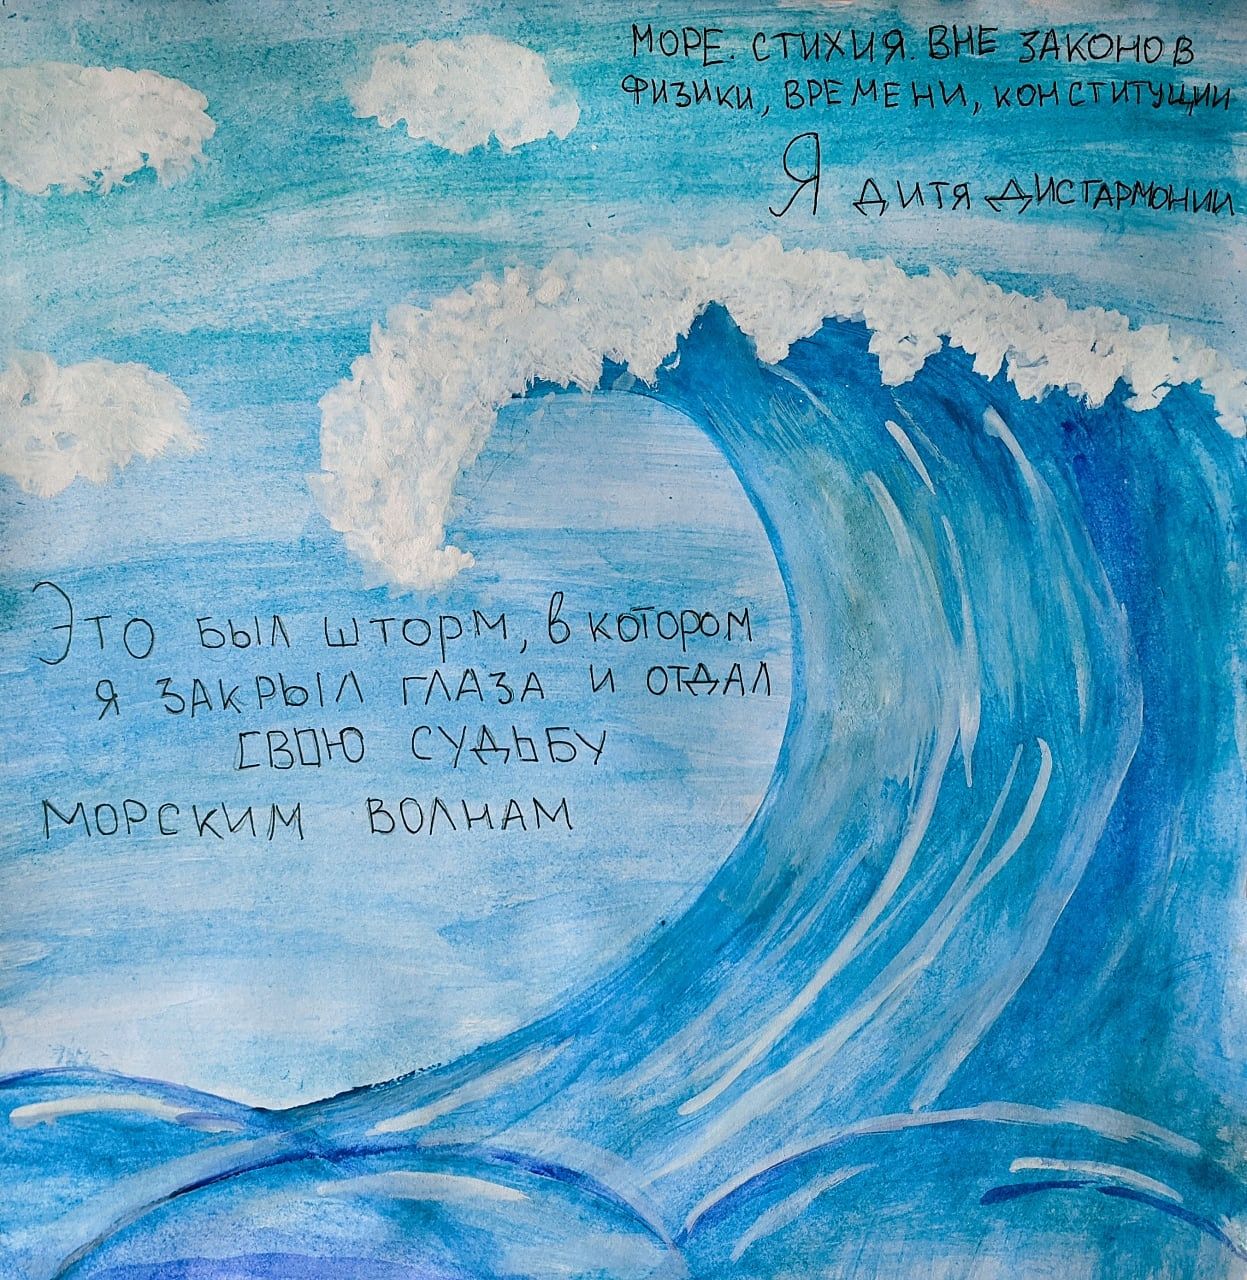 МОРЕ. СТИХИЯ. ВНЕ ЗАКОНОВ
ФИЗИКИ, ВРЕМЕНИ, КОНСТИТУЦИИ
Я ДИТЯ ДИСГАРМОНИИ
ЭТО БЫЛ ШТОРМ, В КОТОРОМ
Я ЗАКРЫЛ ГЛАЗА И ОТДАЛ
СВОЮ СУДЬБУ
МОРСКИМ ВОЛНАМ